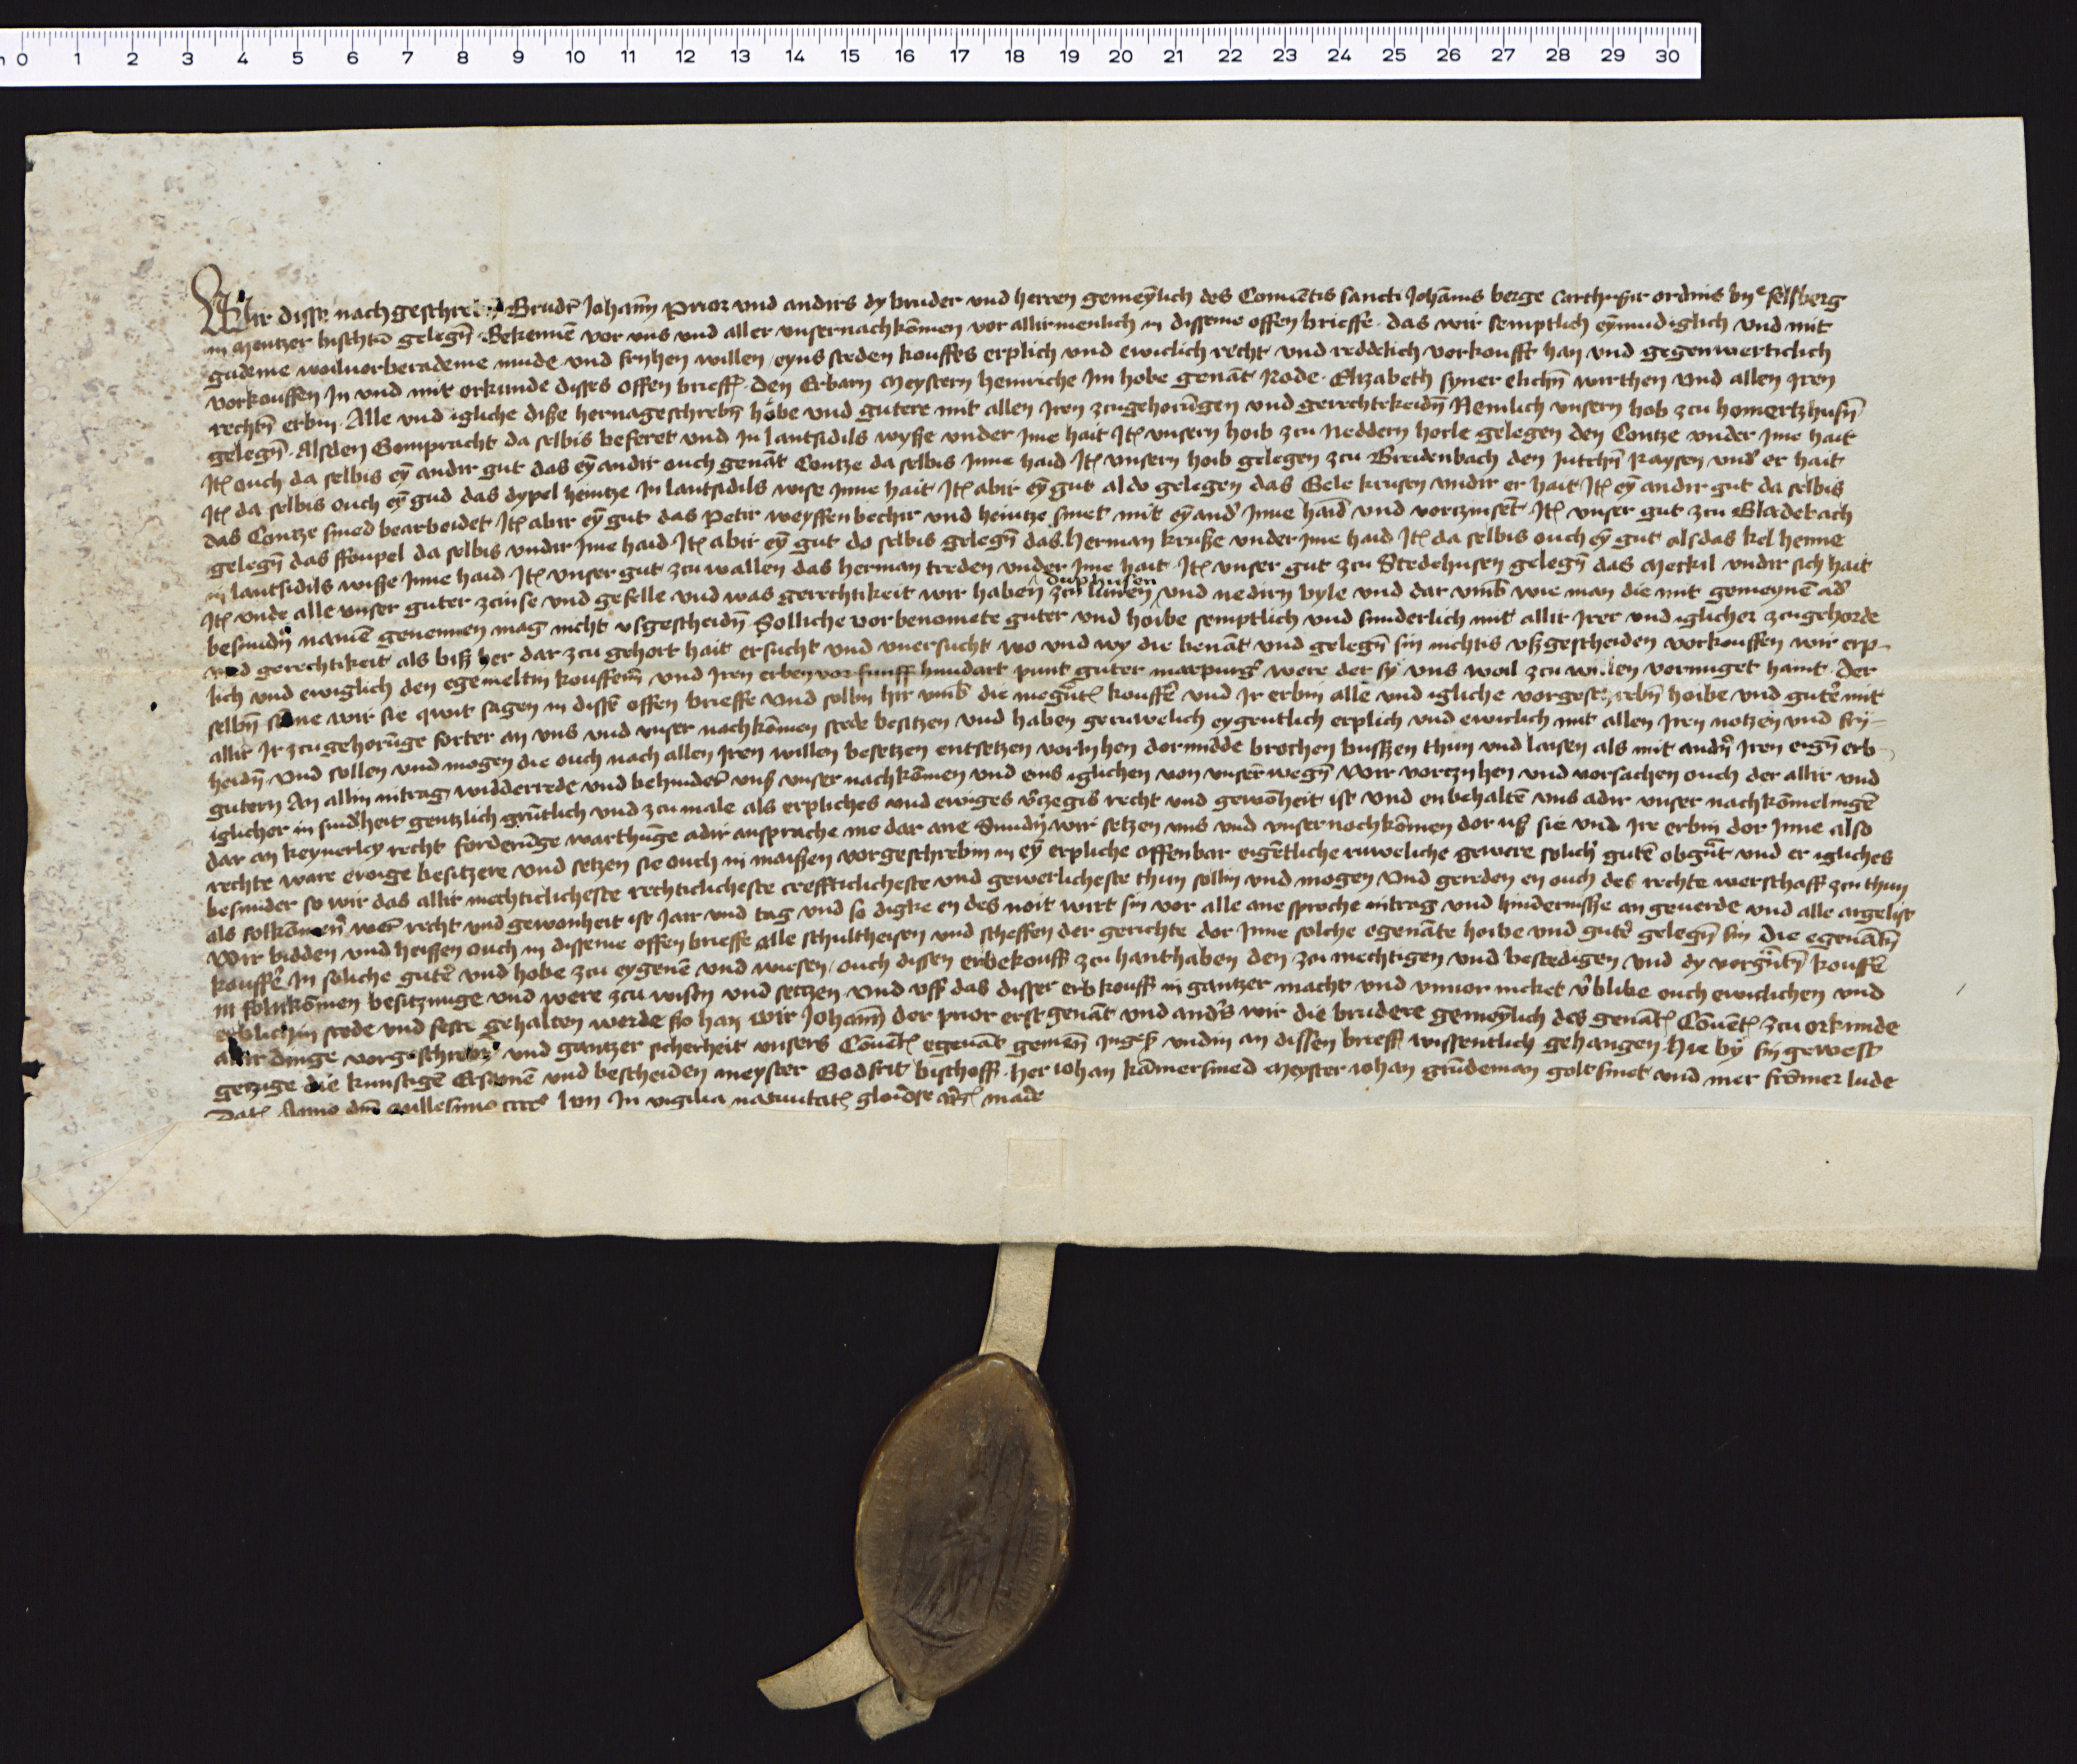 0 1 2 3 4 5 6 7 8 9 10 11 12 13 14 15 16 17 18 19 20 21 22 23 24 25 26 27 28 29 30
Wir disse nach geschreben Brudr Johan̄ Prior vnd andirs dy bruder vnd herren gemeyn̄lich des Conuētis sancti Johānis berge Carthusir ordinis by felsberg
in Mentzer bischtū gelegn̄ Bekennē vor vns vnd aller vnsernachkōmen vor allirmenlich in disseme offen brieffe das wir semptlich eynmudiglich vnd mit
gudeme woiluorberademe mude vnd fryhen willen eyns steden kouffes erplich vnd ewiclich recht vnd reddelich vorkoufft han vnd gegenwerticlich
vorkouffen In vnd mit orkunde disses offen brieff den Erbarn Meystern heinriche Im hobe genāt Rode Elizabeth syner elichn̄ wirthen vnd allen Iren
rechtn̄ erbin Alle vnd igliche diße hernageschrebn̄ hobe vnd gutere mit allen Iren zcugehorūgen vnd gerechtekeidn̄ Nemlich vnsern hob zcu homertzhusn̄
gelegn̄ Alsden Gompracht da selbis beseret vnd In lantsidils wyße vnder Ime hait It̄ vnsern hoib zcu Neddern horle gelegen den Contze vnder Ime hait
It̄ ouch da selbis eȳ andir gut das eȳ andir ouch genāt Contze da selbis Inne haid It̄ vnsern hoib gelegen zcu Breidenbach den Jutchn̄ Raysen vnd er hait
It̄ da selbis ouch eȳ gud das dypel heintze In lantsidils wise Inne hait It̄ abir eȳ gut aldo gelegen das Gele krusen vndir er hait It̄ eȳ andir gut da selbis
das Contze smed bearbeidet It̄ abir eȳ gut das Petir weyffenbechir vnd heintze smet mit eȳand Inne haid vnd vorczinsēt It̄ vnser gut zcu Bladebach
gelegn̄ das da selbis vndir Ime haid It̄ abir eȳ gut do selbis gelegn̄ das Herman kruße vnder Ime haid It̄ da selbis ouch eȳ gut alsdas kel henne
in lantsidils wisse Inne haid It̄ vnser gut zcu wallen das herman treden vnder Ime hait It̄ vnser gut zcu Stedehusen gelegn̄ das Meckil vndir sich hait
duphusen
It̄ vnde alle vnser guter zcinse vnd gefelle vnd was gerechtikeit wir haben zcu vnd nedirn byle vnd dar vmb wie man die mit gemeynē ad
besundn̄ namē genennen mag nicht vsgescheidn̄ Solliche vorbenomete guter vnd hoibe semptlich vnd sunderlich mit allir Irer vnd iglicher zcugehorde
vnd gerechtikeit als biß her dar zcu gehort hait ersucht vnd vnersucht wo vnd wy die benāt vnd gelegn̄ sin nichtis vßgescheiden vorkouffen wir erp-
lich vnd ewiglich den egemeltin kouffern̄ vnd Iren erben vor funff hundart punt guter marpurg were der sy vns woil zcu willen vernuget haint Der
selbn̄ sūme wir sie qwit sagen in dissē offen brieffe vnd sollin hir vmb die kouffē vnd Ir erbin alle vnd igliche vorgeschrebn̄ hoibe vnd gute mit
allir Ir zcugehorūge forter an vns vnd vnser nachkōmen stede besitzen vnd haben geruwelich eygentlich erplich vnd ewiclich mit allen Iren notzen vnd fry-
heidn̄ Vnd sollen vnd mogen die ouch nach allen Iren willen besetzen entsetzen vorlyhen dormidde brochen bußzen thun vnd laisen als mit andn̄ Iren eign̄ erb-
gutern An allin intrag widderrede vnd behinder vnß vnser nachkōmen vnd eins iglichen von vnser wegn̄ Wir vorczyhen vnd vorsachen ouch der allir vnd
iglicher in sundheit gentzlich grūtlich vnd zcu male als erpliches vnd ewiges recht vnd gewōheit ist Vnd enbehaltē vns adir vnser nachkōmelingē
dar an keynerley recht forderūge warthūge adir ansprache me dar ane Sundn̄ wir setzen vns vnd vnser nochkōmen dor uß sie vnd Ire erbin dor Inne also
rechte ware ewige besitzere vnd setzen sie ouch in maißen vorgeschrebin in eȳ erpliche offenbar eigētliche ruweliche gewere solich gutē obgnāt vnd er igliches
besunder so wir das allir mechticlicheste rechticlicheste crefftielicheste vnd gewerlicheste thun sollin vnd mogen Vnd gereden en ouch des rechte werschaff zcu thun
als recht vnd gewonheit ist Jair vnd tag vnd so digke en des noit wirt sin vor alle ane sproche intrag vnd hindernisße an geuerde vnd alle argelist
Wir bidden vnd heissen ouch in disseme offen brieffe alle schultheisen vnd scheffen der gerichte dor Inne solche egenāte hoibe vnd gute gelegn̄ sin Die egenātn̄
kouffe In soliche gute vnd hobe zcu eygenē vnd wiesen ouch dissen erbekouff zcu hanthaben den zcu mechtigen vnd bestedigen Vnd dy kouffē
in folnkōmen besitzunge vnd were zcu wisen vnd setzen Vnd vff das disser erb kouff in gantzer macht vnd vnuor rucket blibe ouch ewiclichen vnd
erblichin stede vnd feste gehalten werde So han wir Johan̄ der prior erstgenāt vnd andrs wir die brudere gemeynlich des genāt Cōuēt zcu orkunde
allir dinge vorgeschreben vnd gantzer sicherheit vnsers Cōuēt egenāt gemein ingeß vndin an dissen brieff wissentlich gehangen Hie by sin gewest
getzuge die kunstigē Ersamē vnd bescheiden meyster Godfrit bischoff her Johan kāmersmed Meyster Johan grūdeman goltsmet vnd mer frōmer lude
Dat Anno dn̄i millesimo cccco In vigilia natiuitat gloriose vgis marie